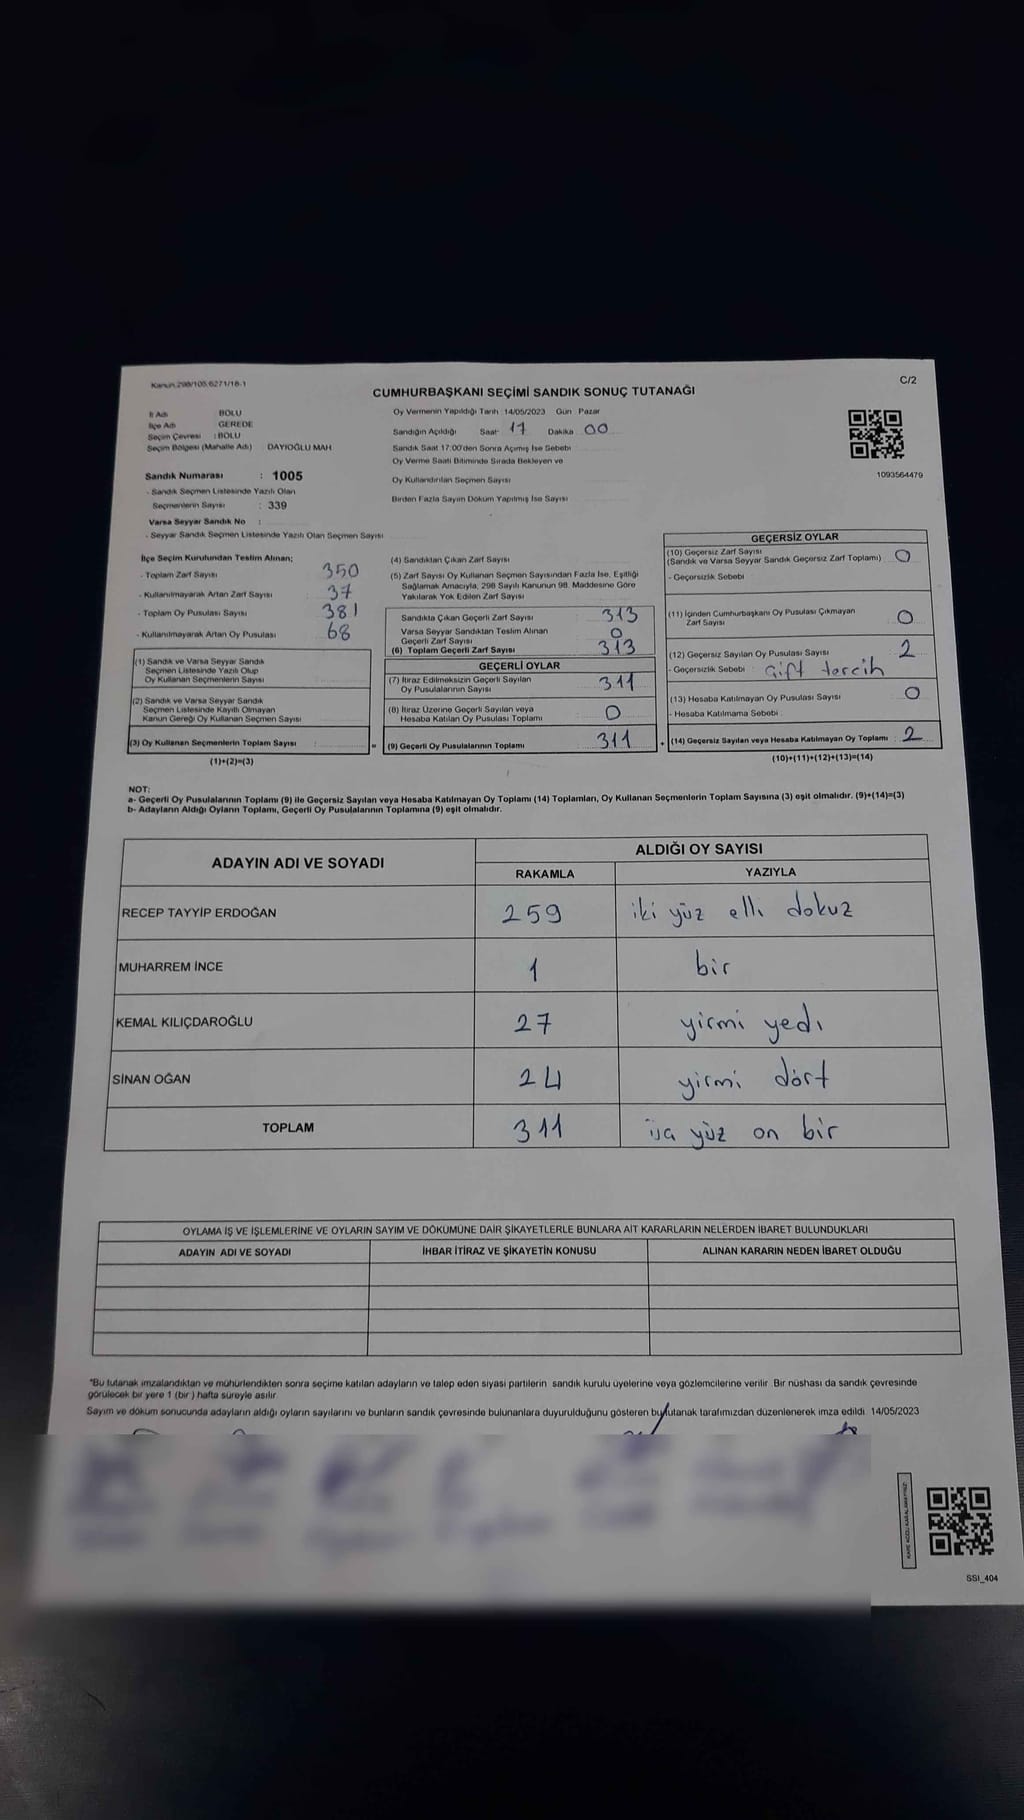 Kanun:298/105;6271/18-1
C/2
CUMHURBAŞKANI SEÇİMİ SANDIK SONUÇ TUTANAĞI
İl Adı : BOLU
İlçe Adı : GEREDE
Seçim Çevresi : BOLU
Seçim Bölgesi (Mahalle Adı) : DAYIOĞLU MAH.
Sandık Numarası : 1005
- Sandık Seçmen Listesinde Yazılı Olan
Seçmenlerin Sayısı : 339
Varsa Seyyar Sandık No :
- Seyyar Sandık Seçmen Listesinde Yazılı Olan Seçmen Sayısı
Oy Vermenin Yapıldığı Tarih 14/05/2023 Gün Pazar
Sandığın Açıldığı Saat 17 Dakika 00
Sandık Saat 17:00'den Sonra Açımış İse Sebebi
Oy Verme Saati Bitiminde Sırada Bekleyen ve
Oy Kullandırılan Seçmen Sayısı
Birden Fazla Sayım Döküm Yapılmış İse Sayısı
1093564479
İlçe Seçim Kurulundan Teslim Alınan;
- Toplam Zarf Sayısı 350
- Kullanılmayarak Artan Zarf Sayısı 37
- Toplam Oy Pusulası Sayısı 381
- Kullanılmayarak Artan Oy Pusulası 68
(1) Sandık ve Varsa Seyyar Sandık
Seçmen Listesinde Yazılı Olup
Oy Kullanan Seçmenlerin Sayısı
(2) Sandık ve Varsa Seyyar Sandık
Seçmen Listesinde Kayıtlı Olmayan
Kanun Gereği Oy Kullanan Seçmen Sayısı
(3) Oy Kullanan Seçmenlerin Toplam Sayısı :
(1)+(2)=(3)
(4) Sandıktan Çıkan Zarf Sayısı
(5) Zarf Sayısı Oy Kullanan Seçmen Sayısından Fazla İse, Eşitliği
Sağlamak Amacıyla, 298 Sayılı Kanunun 98. Maddesine Göre
Yakılarak Yok Edilen Zarf Sayısı
Sandıkta Çıkan Geçerli Zarf Sayısı 313
Varsa Seyyar Sandıktan Teslim Alınan
Geçerli Zarf Sayısı 0
(6) Toplam Geçerli Zarf Sayısı 313
GEÇERLİ OYLAR
(7) İtiraz Edilmeksizin Geçerli Sayılan
Oy Pusulalarının Sayısı 311
(8) İtiraz Üzerine Geçerli Sayılan veya
Hesaba Katılan Oy Pusulası Toplamı 0
= (9) Geçerli Oy Pusulalarının Toplamı 311
GEÇERSİZ OYLAR
(10) Geçersiz Zarf Sayısı
(Sandık ve Varsa Seyyar Sandık Geçersiz Zarf Toplamı) 0
- Geçersizlik Sebebi
(11) İçinden Cumhurbaşkanı Oy Pusulası Çıkmayan
Zarf Sayısı 0
(12) Geçersiz Sayılan Oy Pusulası Sayısı 2
- Geçersizlik Sebebi : Çift tercih
(13) Hesaba Katılmayan Oy Pusulası Sayısı 0
- Hesaba Katılmama Sebebi :
+ (14) Geçersiz Sayılan veya Hesaba Katılmayan Oy Toplamı : 2
(10)+(11)+(12)+(13)=(14)
NOT:
a- Geçerli Oy Pusulalarının Toplamı (9) ile Geçersiz Sayılan veya Hesaba Katılmayan Oy Toplamı (14) Toplamları, Oy Kullanan Seçmenlerin Toplam Sayısına (3) eşit olmalıdır. (9)+(14)=(3)
b- Adayların Aldığı Oyların Toplamı, Geçerli Oy Pusulalarının Toplamına (9) eşit olmalıdır.
ADAYIN ADI VE SOYADI
ALDIĞI OY SAYISI
RAKAMLA YAZIYLA
RECEP TAYYİP ERDOĞAN 259 iki yüz elli dokuz
MUHARREM İNCE 1 bir
KEMAL KILIÇDAROĞLU 27 yirmi yedi
SİNAN OĞAN 24 yirmi dört
TOPLAM 311 üç yüz on bir
OYLAMA İŞ VE İŞLEMLERİNE VE OYLARIN SAYIM VE DÖKÜMÜNE DAİR ŞİKAYETLERLE BUNLARA AİT KARARLARIN NELERDEN İBARET BULUNDUKLARI
ADAYIN ADI VE SOYADI İHBAR İTİRAZ VE ŞİKAYETİN KONUSU ALINAN KARARIN NEDEN İBARET OLDUĞU
*Bu tutanak imzalandıktan ve mühürlendikten sonra seçime katılan adayların ve talep eden siyasi partilerin sandık kurulu üyelerine veya gözlemcilerine verilir. Bir nüshası da sandık çevresinde
görülecek bir yere 1 (bir ) hafta süreyle asılır.
Sayım ve döküm sonucunda adayların aldığı oyların sayılarını ve bunların sandık çevresinde bulunanlara duyurulduğunu gösteren bu tutanak tarafımızdan düzenlenerek imza edildi. 14/05/2023
KARE KODU KARALAMAYINIZ!
SSI_404